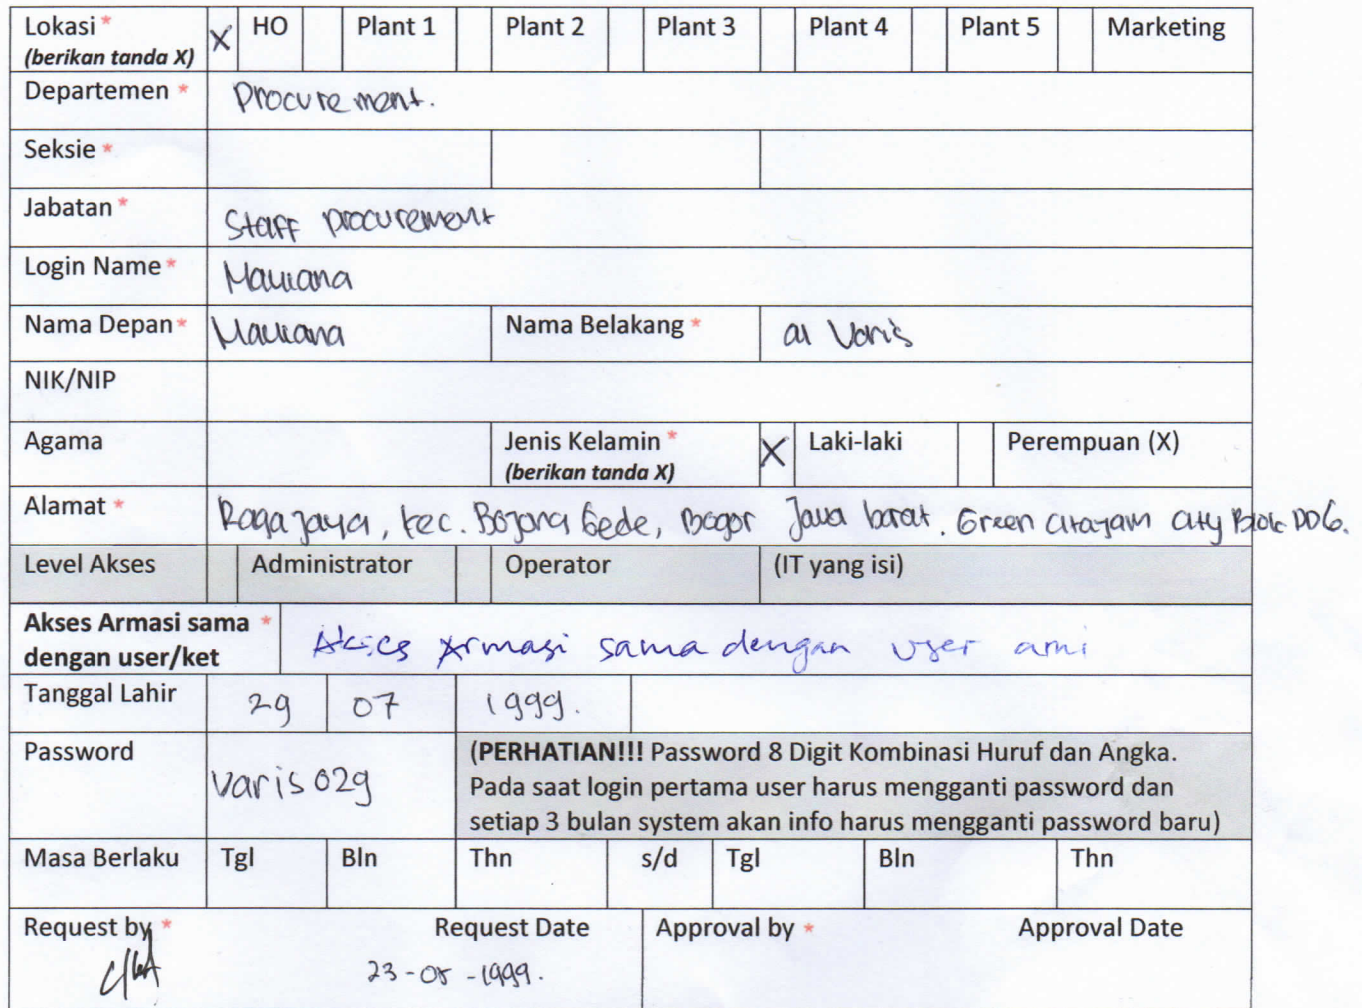 Lokasi *
(berikan tanda X) X HO Plant 1 Plant 2 Plant 3 Plant 4 Plant 5 Marketing
Departemen * Procurement.
Seksie *
Jabatan * Staff procurement
Login Name * Maulana
Nama Depan * Maulana Nama Belakang * al Varis
NIK/NIP
Agama Jenis Kelamin * X Laki-laki Perempuan (X)
(berikan tanda X)
Alamat * Ragajaya, kec. Bojong Gede, Bogor Jawa barat. Green citayam city Blok DD6.
Level Akses Administrator Operator (IT yang isi)
Akses Armasi sama *
dengan user/ket Akses Armasi sama dengan user ami
Tanggal Lahir 29 07 1999.
Password varis029 (PERHATIAN!!! Password 8 Digit Kombinasi Huruf dan Angka.
Pada saat login pertama user harus mengganti password dan
setiap 3 bulan system akan info harus mengganti password baru)
Masa Berlaku Tgl Bln Thn s/d Tgl Bln Thn
Request by * Request Date Approval by * Approval Date
23-05-1999.